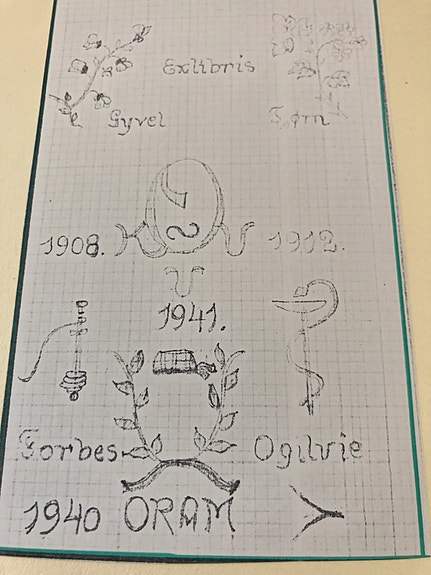 Exlibris
Gyvel Tørn
1908. 1912.
1941.
Forbes Ogilvie
1940 ORAM